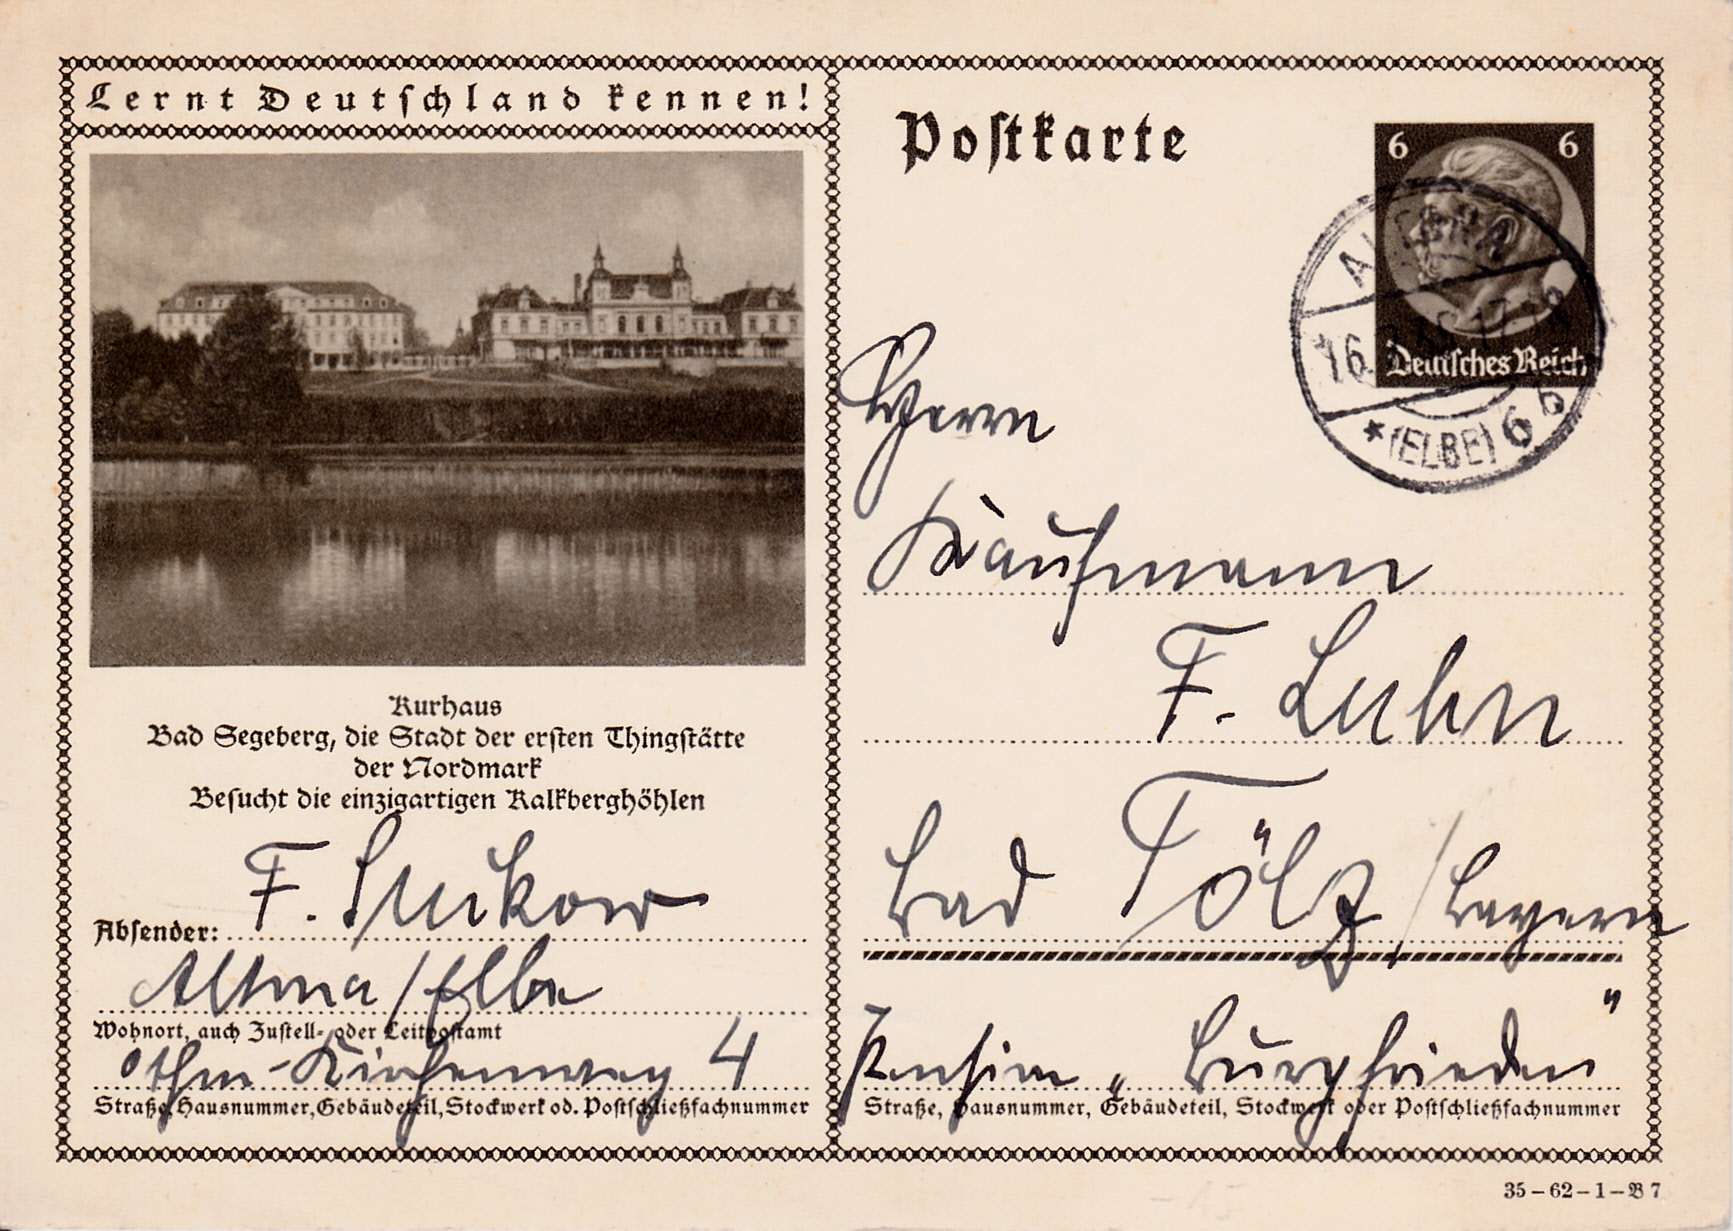 Lernt Deutschland kennen!
Kurhaus
Bad Segeberg, die Stadt der ersten Thingstätte
der Nordmark
Besucht die einzigartigen Kalkberghöhlen
F. Suckow
Absender:
Altona / Elbe
Wohnort, auch Zustell- oder Leitpostamt
Othm-Kirchenweg 4
Straße, Hausnummer, Gebäudeteil, Stockwerk od. Postschließfachnummer
Postkarte
6 6
Deutsches Reich
ALTONA
16. 17-18
* (ELBE) 6 b
Herrn
Kaufmann
F. Luhn
Bad Tölz / Bayern
Pension „Burgfrieden"
Straße, Hausnummer, Gebäudeteil, Stockwerk oder Postschließfachnummer
35-62-1-B 7